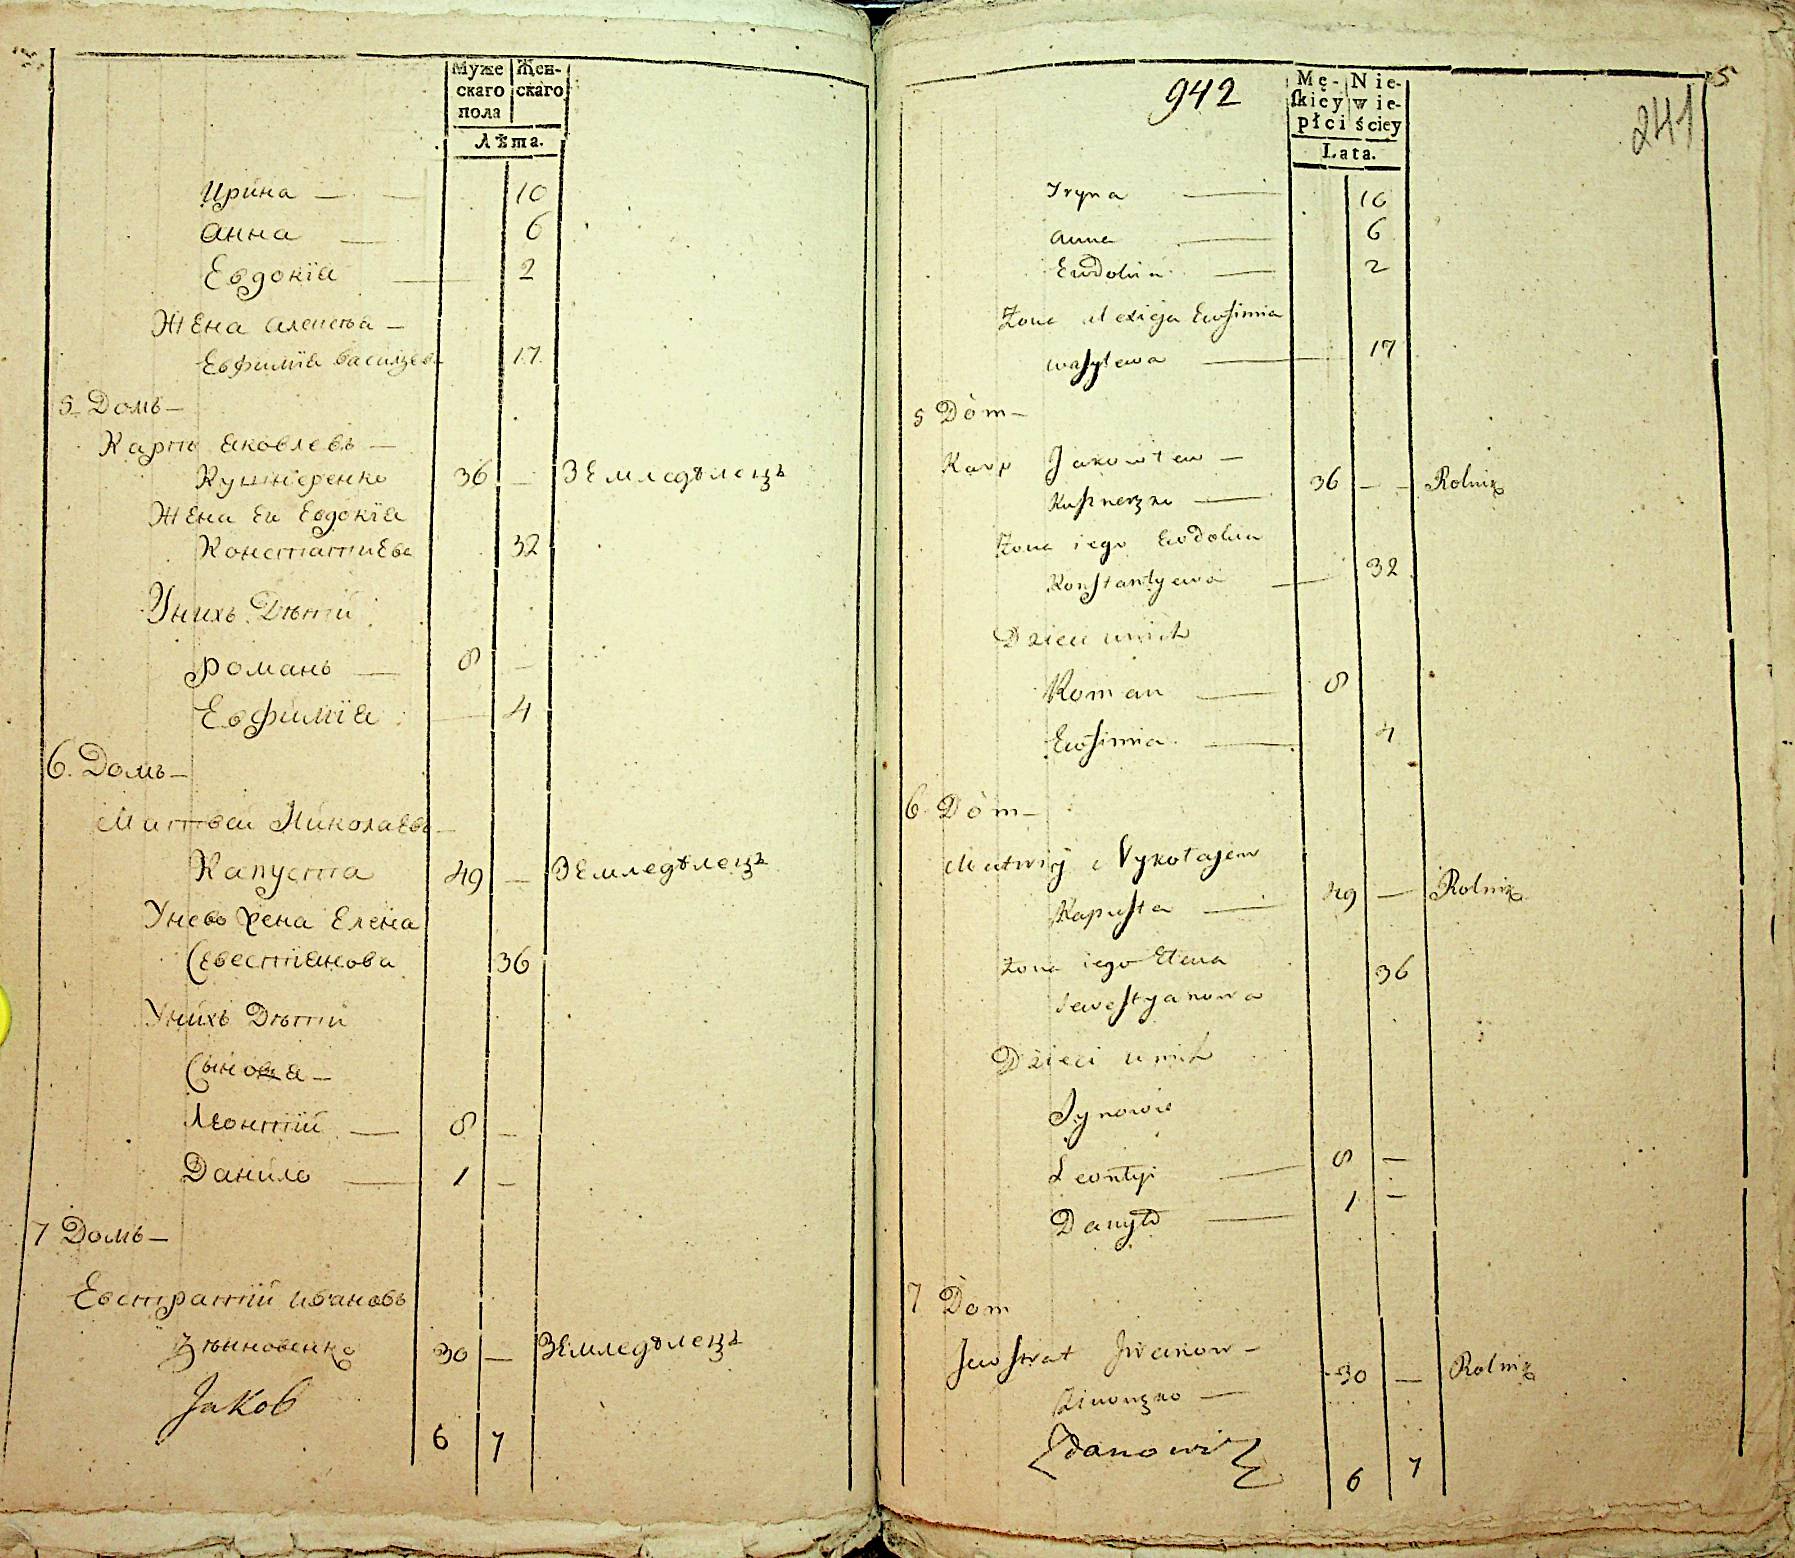 Муже Жен-
скаго скаго
пола
Лѣта.
Ирина — — 10
Анна — 6
Евдокїа — 2
Жена Алексѣа —
Евфимїа Василева 17
5 Домъ —
Карпъ Яковлевъ —
Кушнеренко 36 — Земледѣлецъ
Жена Ев Евдокїа
Константиева 32
Унихъ Дѣтій
Романъ — 8 —
Евфимїа — 4
6. Домъ —
Матвей Николаевъ —
Капуста 49 — Земледѣлецъ
Унево жена Елена
Севестіянова 36
Унихъ Дѣтій
Сынова —
Леонтїй — 8 —
Данило — 1 —
7 Домъ —
Евстратїй Ивановъ
30 — Земледѣлецъ
Jakob
6 7
5
942
241
Mę- Nie-
ſkiey wie-
płci ściey
Lata.
Iryna — 10
Anna — 6
Ewdokia — 2
Zona Alexieja Ewfimia
Wasylewa — 17
5 Dòm —
Karp Jakowlew —
Kuszneręko — 36 — — Rolnik
Zona iego Ewdokia
Konstantyewa — 32
Dzieci unich
Roman — 8
Ewfimia — 4
6 Dòm —
Matwiy Nykołajew
Kapusta — 49 — Rolnik
Zona iego Elena 36
Sewestyanowa
Dzieci unich
Synowie
Leontyi — 8 —
Danyło — 1 —
7 Dòm
Jewstrat Iwanow —
30 — Rolnik
Zdanowi
6 7